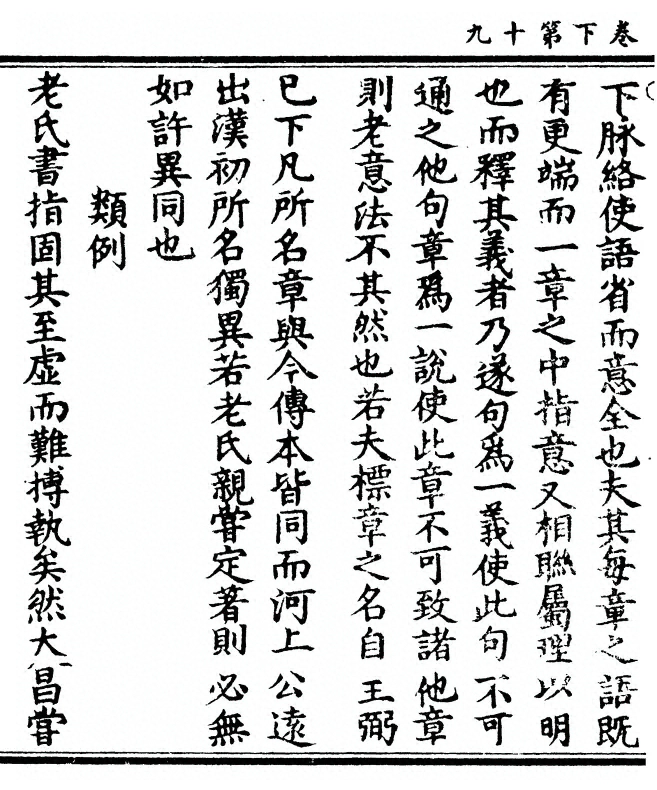 卷下第十九
下脉絡使語省而意全也夫其每章之語既
有更端而一章之中指意又相聯屬理以明
也而釋其義者乃遂句爲一義使此句不可
通之他句章爲一說使此章不可致諸他章
則老意法不其然也若夫標章之名自王弼
已下凡所名章與今傳本皆同而河上公遠
出漢初所名獨異若老氏親甞定著則必無
如許異同也
類例
老氏書指固其至虛而難摶執矣然大昌甞